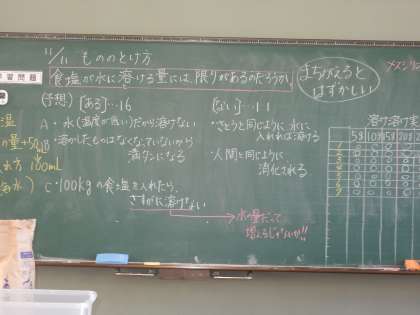 11/11 もののとけ方
学習問題
食塩が水に溶ける量には、限りがあるのだろうか。
まちがえると
はずかしい
メスシリ
(予想) [ある]…16
[ない]…11
A・水(温度が低い)だから溶けない
・溶かしたものはなくなっていないから
満タンになる
・さとうと同じように水に
入れれば溶ける
・人間と同じように
消化される
C・100kgの食塩を入れたら、
さすがに溶けない
→水の量だって
増えるじゃないか!!
温
の量→50mL
方 100mL
水)
溶け溶け実
5g 10g 15g 20g
1
2
3
4
5
6
7